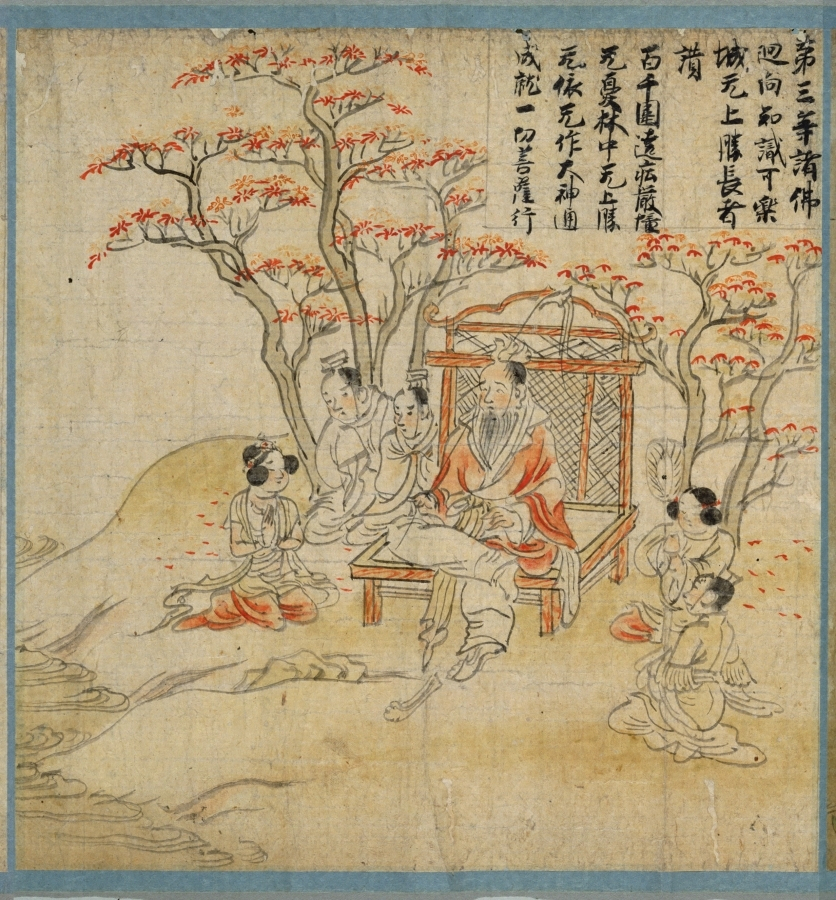 第三等諸佛
廻向知識可楽
城无上勝長者
讃
百千園遶莊厳幢
无憂林中无上勝
无依无作大神通
成就一切菩薩行